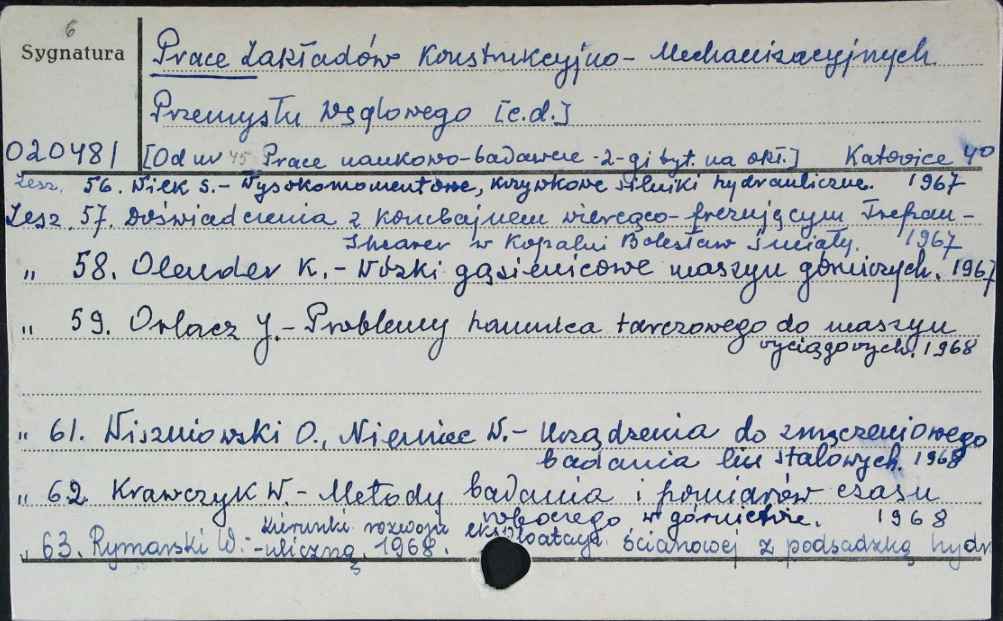 6
Sygnatura
Prace Zakładów Konstrukcyjno-Mechanizacyjnych
Przemysłu Węglowego [c.d.]
020481
[Od nr 45 Prace naukowo-badawcze -2-gi tyt. na okł.] Katowice 4°
Zesz. 56. Wilk S.- Wysokomomentowe, krzywkowe silniki hydrauliczne. 1967
Zesz. 57. Doświadczenia z kombajnem wiercąco-frezującym Trepan-
Shearer w Kopalni Bolesław Śmiały. 1967
" 58. Olender K.- Wózki gąsienicowe maszyn górniczych. 1967
" 59. Orlacz J.- Problemy hamulca tarczowego do maszyn
wyciągowych. 1968
" 61. Wiszniowski O., Niemiec W.- Urządzenia do zmęczeniowego
badania lin stalowych. 1968
" 62 Krawczyk W.- Metody badania i pomiarów czasu
roboczego w górnictwie. 1968
" 63. Rymarski W.- Kierunki rozwoju eksploatacji ścianowej z podsadzką hydr
-uliczną, 1968.